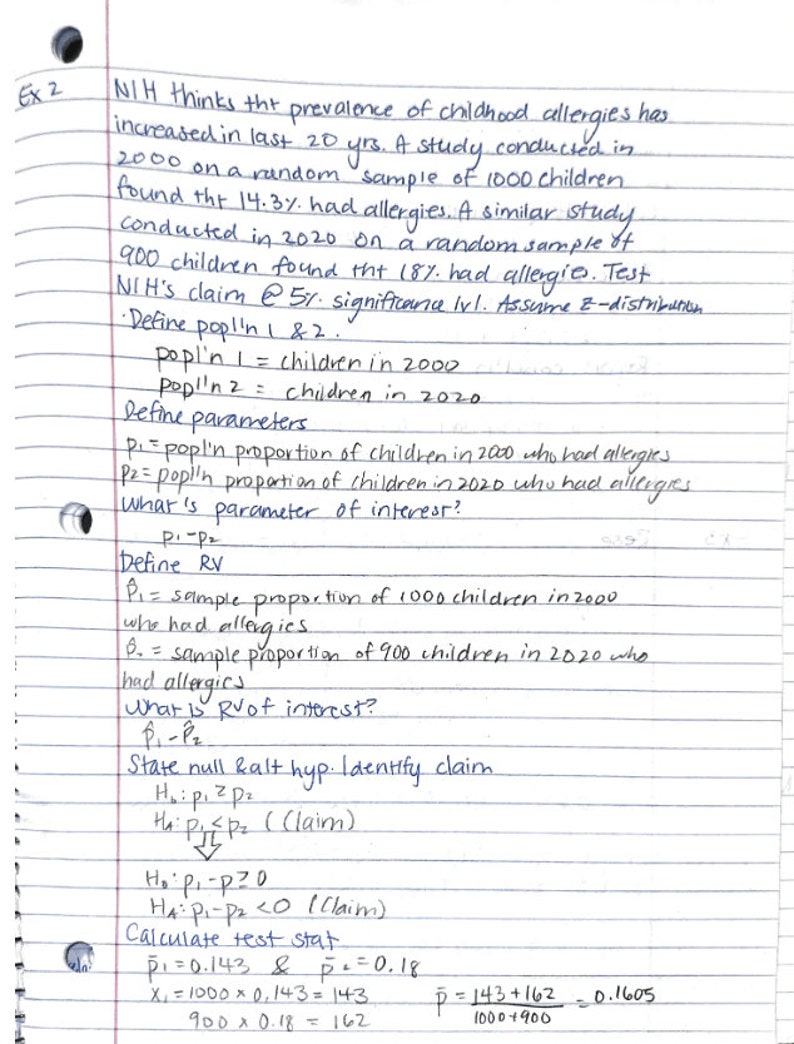 Ex 2
NIH thinks tht prevalence of childhood allergies has
increased in last 20 yrs. A study conducted in
2000 on a random sample of 1000 children
found tht 14.3% had allergies. A similar study
conducted in 2020 on a random sample of
900 children found tht 18% had allergies. Test
NIH's claim @ 5% significance lvl. Assume Z-distribution
·Define popl'n 1 & 2.
popl'n 1 = children in 2000
popl'n 2 = children in 2020
Define parameters
p₁ = popl'n proportion of children in 2000 who had allergies
p₂ = popl'n proportion of children in 2020 who had allergies
What's parameter of interest?
p₁ - p₂
Define RV
p̂₁ = sample proportion of 1000 children in 2000
who had allergies
p̂₂ = sample proportion of 900 children in 2020 who
had allergies
What is RV of interest?
p̂₁ - p̂₂
State null & alt hyp. Identify claim
H₀: p₁ ≥ p₂
HA: p₁ < p₂ (Claim)
H₀: p₁ - p ≥ 0
HA: p₁ - p₂ < 0 (Claim)
Calculate test stat
p̄₁ = 0.143 & p̄₂ = 0.18
x₁ = 1000 × 0.143 = 143 p̄ = 143 + 162 / 1000 + 900 = 0.1605
900 × 0.18 = 162